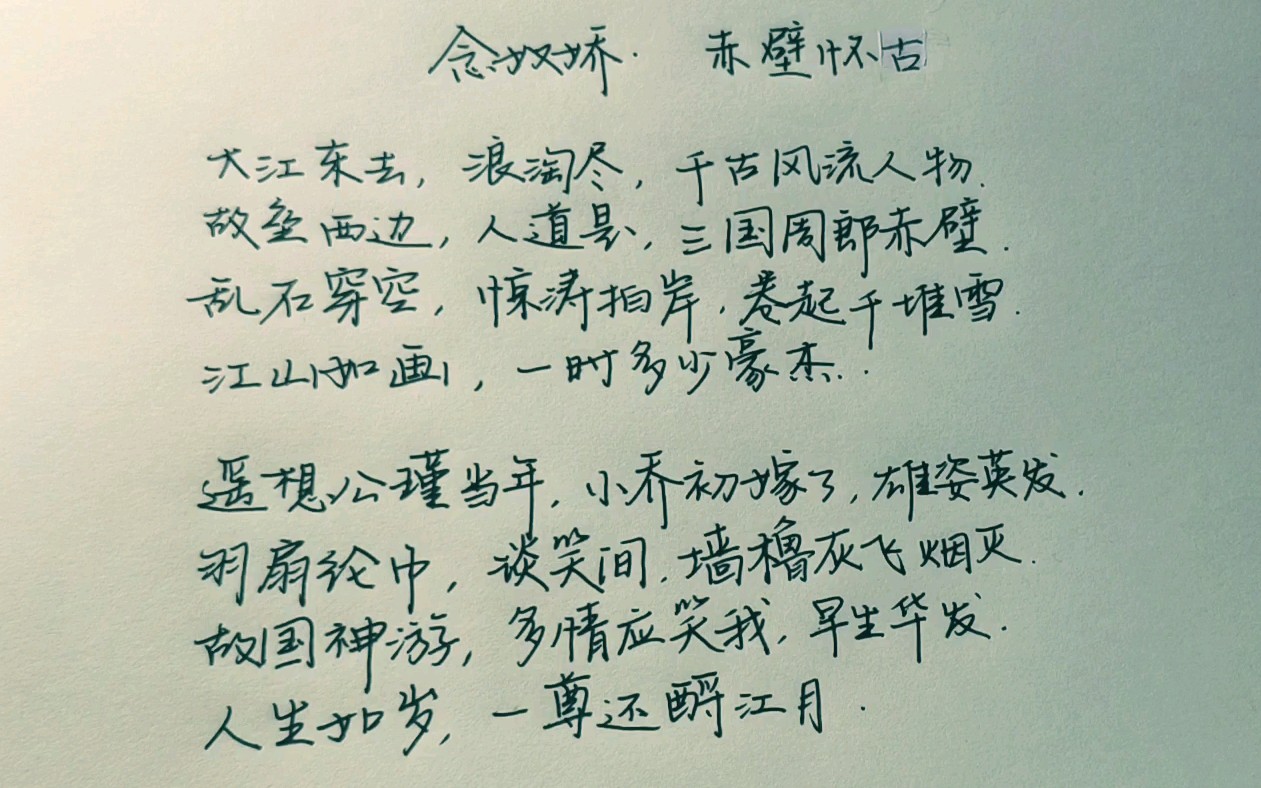 念奴娇·赤壁怀古
大江东去,浪淘尽,千古风流人物.
故垒西边,人道是,三国周郎赤壁.
乱石穿空,惊涛拍岸,卷起千堆雪.
江山如画,一时多少豪杰..
遥想公瑾当年,小乔初嫁了,雄姿英发.
羽扇纶巾,谈笑间,墙橹灰飞烟灭.
故国神游,多情应笑我,早生华发.
人生如岁,一尊还酹江月.